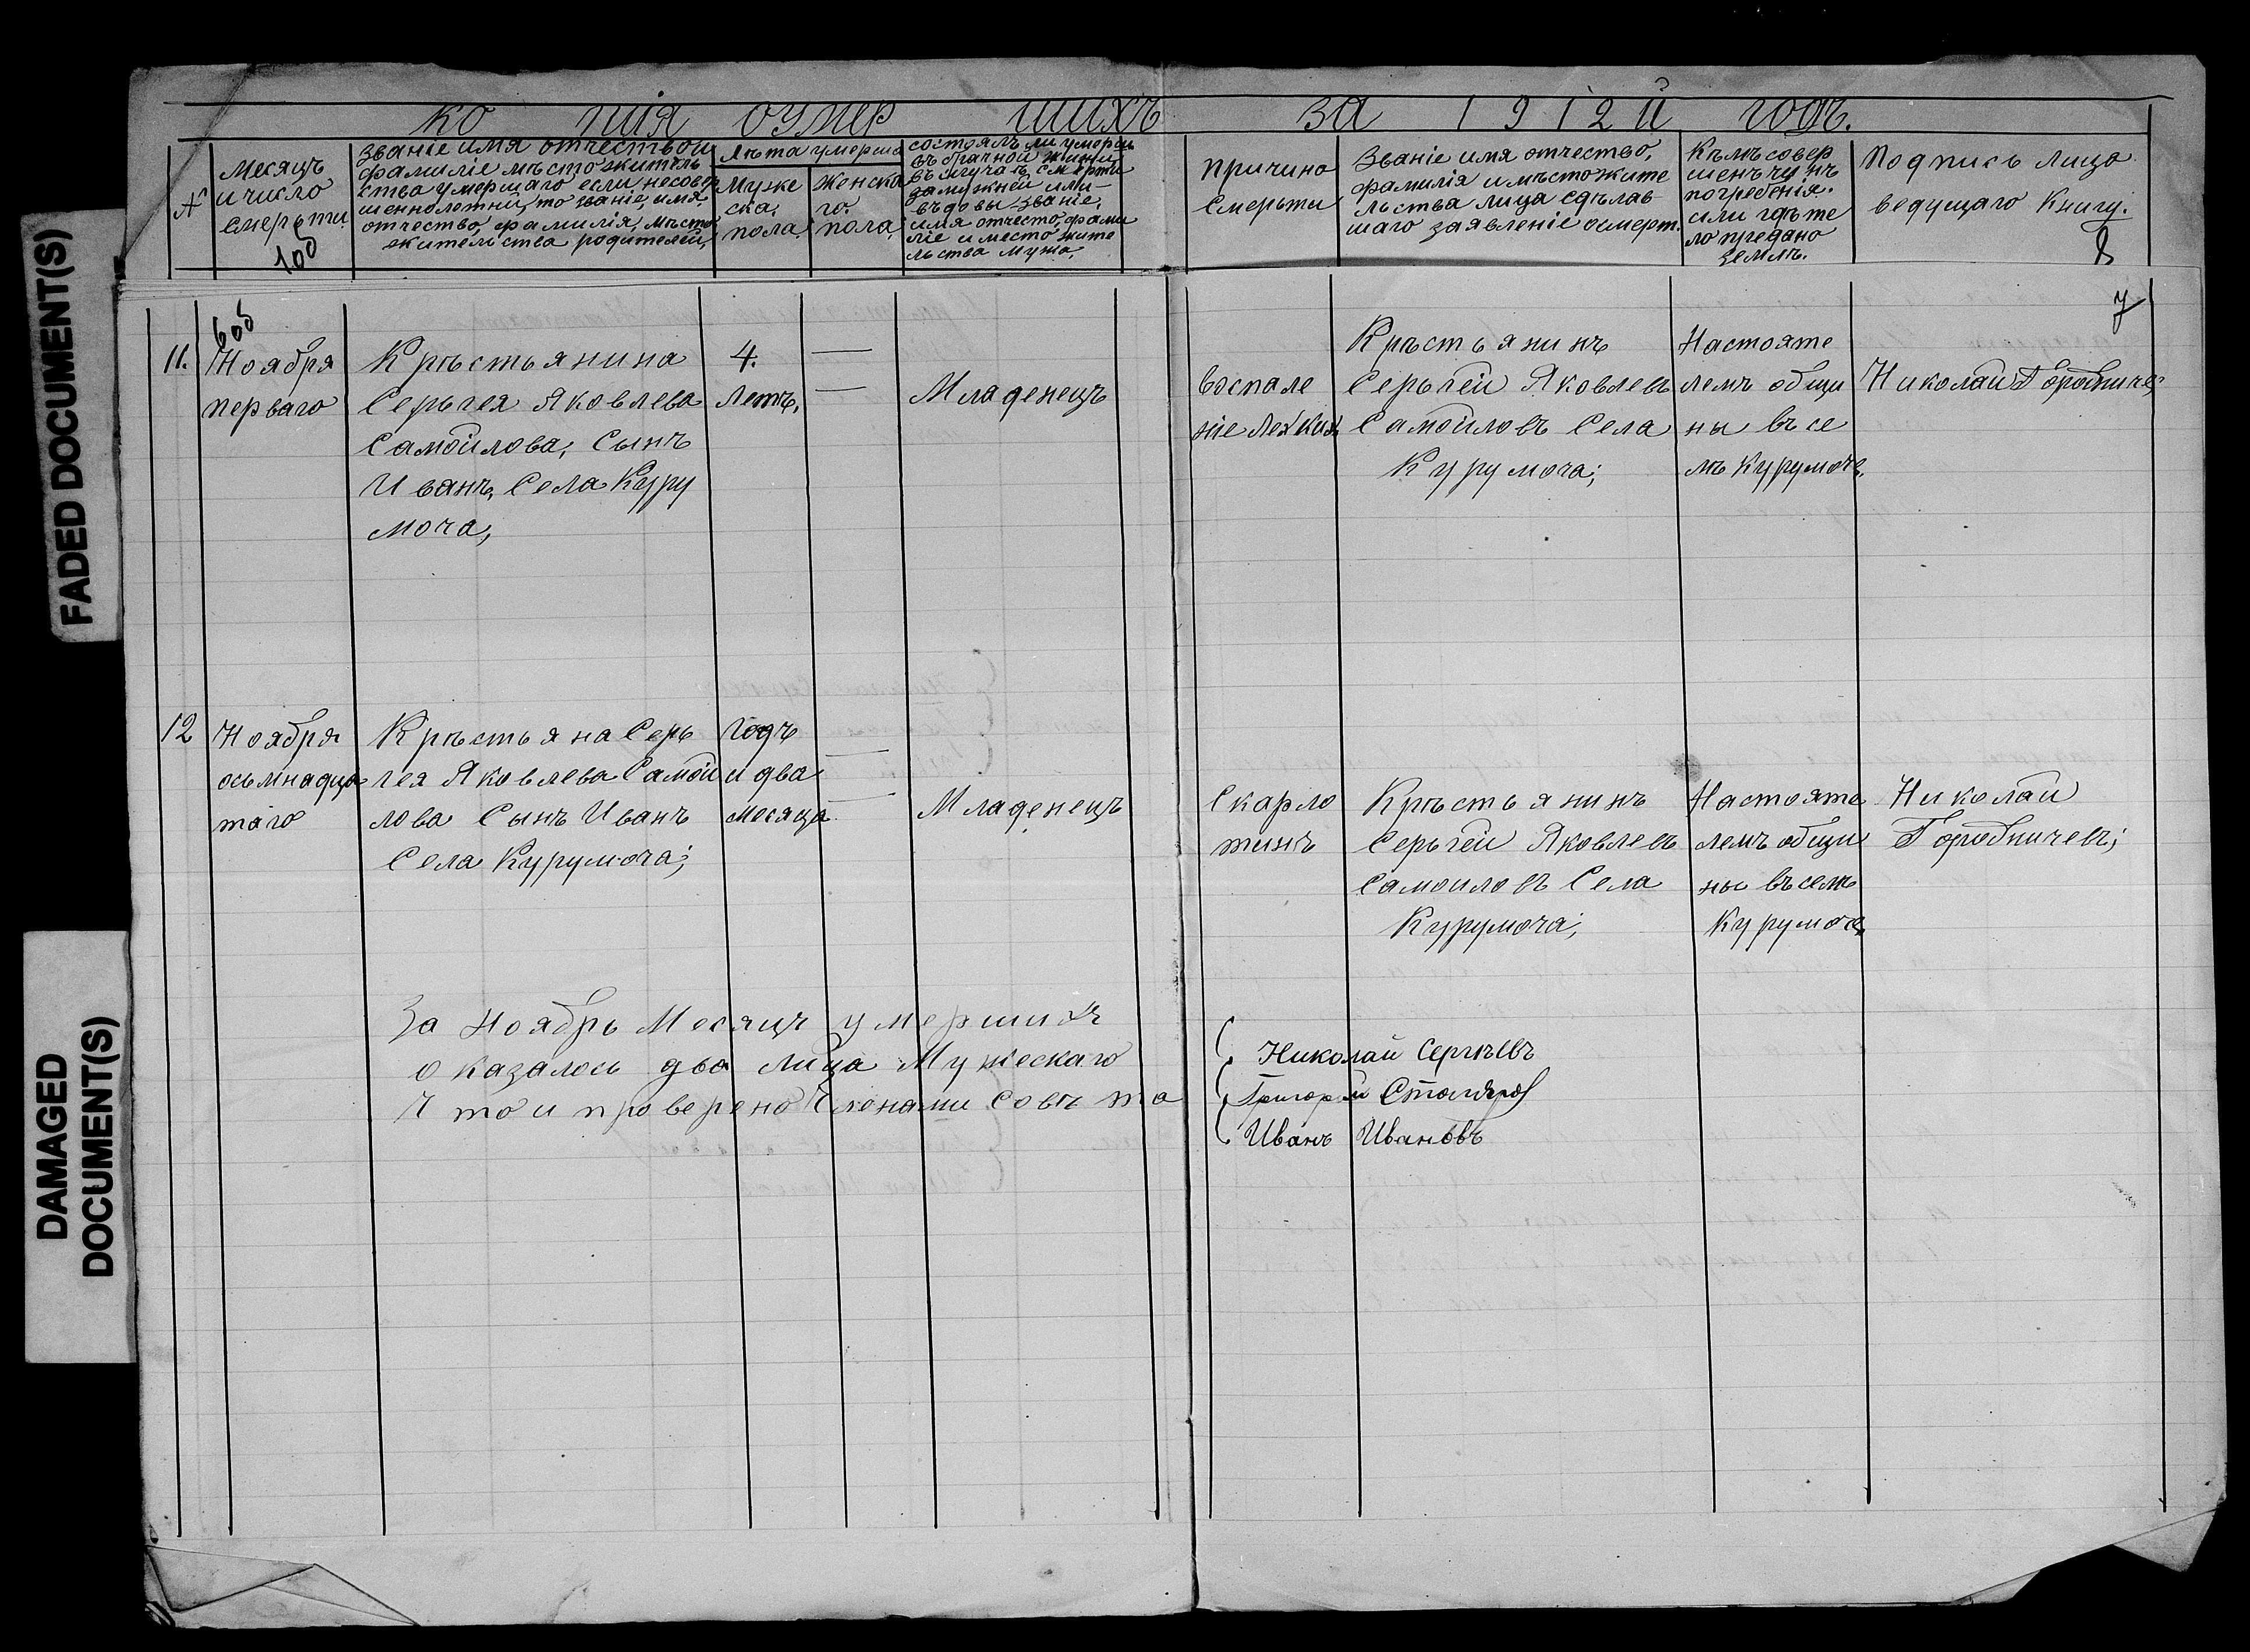 FADED DOCUMENT(S)
DAMAGED
DOCUMENT(S)
ко пія оумер шихъ за 1912й годъ.
№
Месяцъ
и число
смерьти
100
Званіе имя отчество и
фамиліе мѣсто житель
ства умершаго если несовер
шеннолетни, то званіе, имя
отчество, фамилія, мѣсто
жительства родителей,
Лѣта умерша
Муже
ска,
пола,
Женска
го.
пола,
состоялъ ли умерсь
въ брачной жизни
въ случаѣ смерти
замужней или
въдовы званіе,
имя отчество, фами
ліе и место жите
льства мужа,
причино
Смерьти
Званіе имя отчество,
фамилія и мѣсто жите
льства лица сдѣлав
шаго заявленіе осмерт.
Къмъ совер
шенъ чунъ
погребенія.
или где те
ло предано
земли.
Подпись лица
ведущаго Книгу.
8
7
60б
11.
Ноября
перваго
Крѣстьянина
Серьгея Яковлева
Самойлова, Сынъ
Иванъ, Села Куру
моча,
4.
летъ,
Младенецъ
Воспале
ніе Лехких
Крѣстьянинъ
Серьгей Яковлевъ
Самойловъ Села
Курумоча;
Настояте
лемъ общи
ны въ се
лѣ Курумоче,
Николай Городниче,
12
Ноября
осьмнадца
таго
Крѣстьяна Серь
гея Яковлева Самой
лова Сынъ Иванъ
Села Курумоча;
Годъ
и два
месяца
Младенецъ
Скарло
тинъ
Крѣстьянинъ
Серьгей Яковлевъ
Самоиловъ Села
Курумоча;
Настояте
лемъ общи
ны въ селѣ
Курумоче,
Николай
Городничевъ;
За Ноябрь Месяцъ умершихъ
оказалось два лица Мужескаго
Что и проверено Членами Совѣта
Николай Сергѣевъ
Григорий Столяров
Иванъ Ивановъ